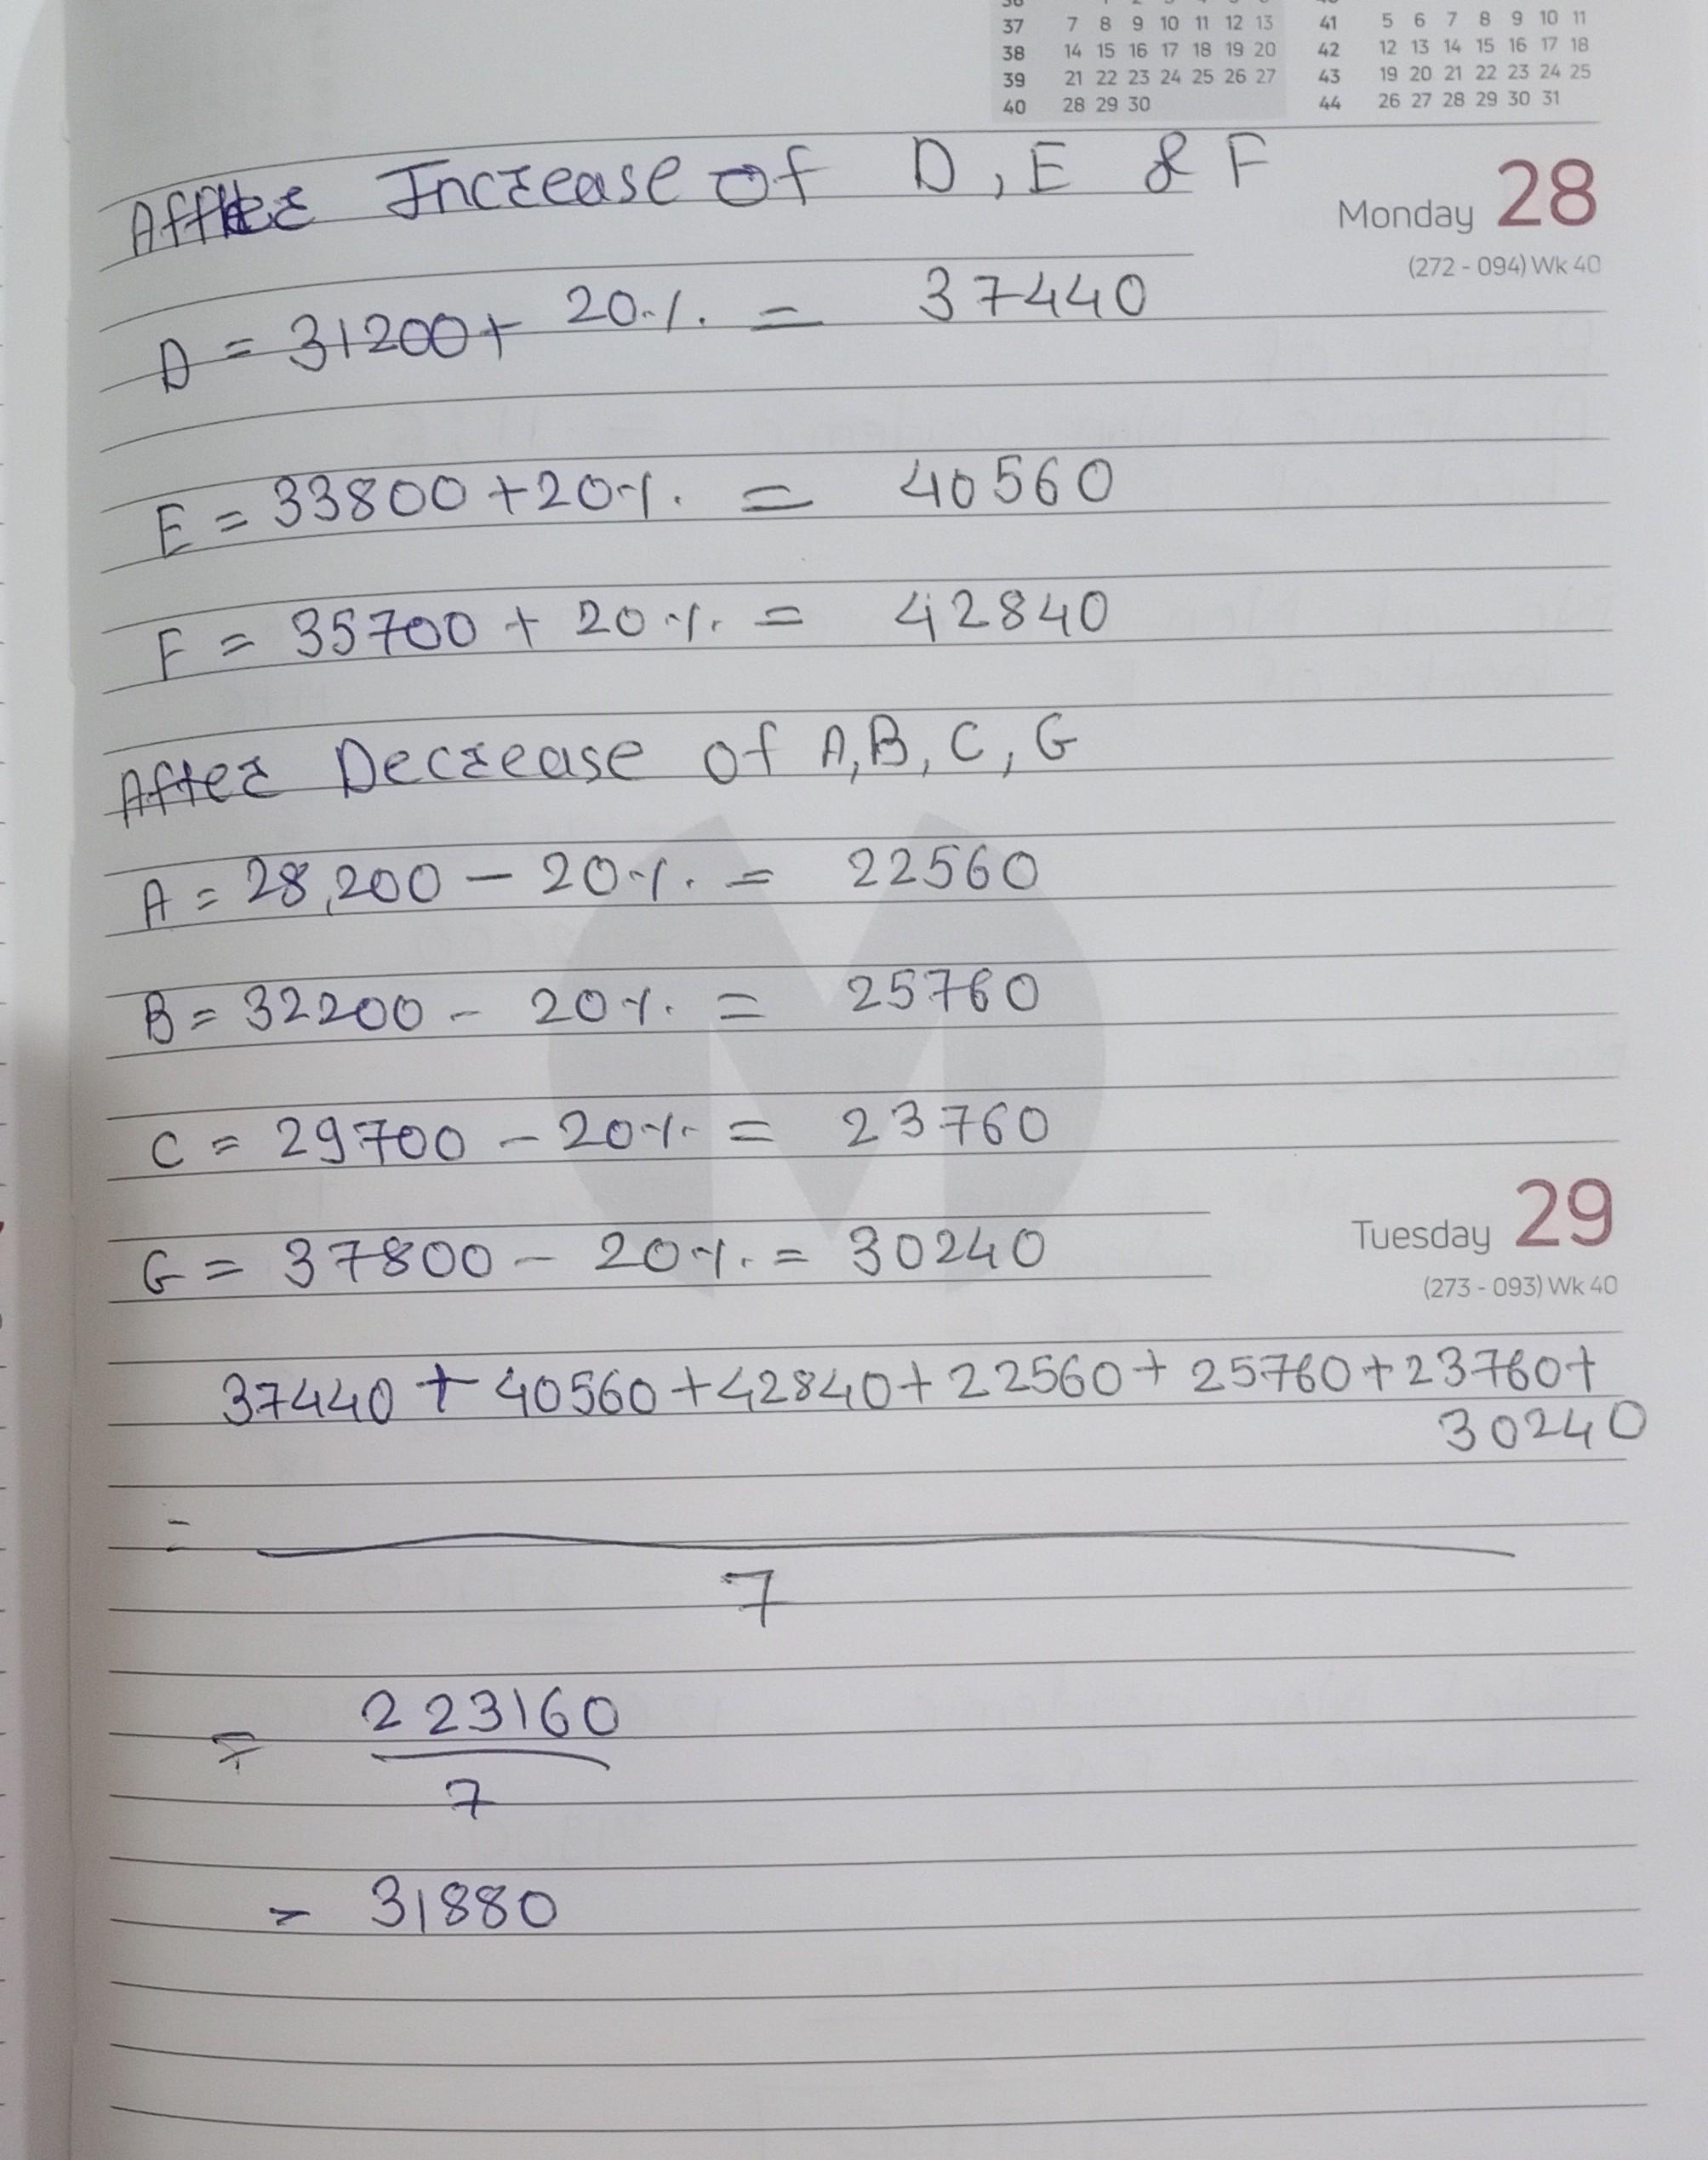 36 1 2 3 4 5 6 40
37 7 8 9 10 11 12 13 41 5 6 7 8 9 10 11
38 14 15 16 17 18 19 20 42 12 13 14 15 16 17 18
39 21 22 23 24 25 26 27 43 19 20 21 22 23 24 25
40 28 29 30 44 26 27 28 29 30 31
After Increase of D, E & F
Monday 28
(272 - 094) Wk 40
D = 31200 + 20% = 37440
E = 33800 + 20% = 40560
F = 35700 + 20% = 42840
After Decrease of A, B, C, G
A = 28,200 - 20% = 22560
B = 32200 - 20% = 25760
C = 29700 - 20% = 23760
G = 37800 - 20% = 30240
Tuesday 29
(273 - 093) Wk 40
37440 + 40560 + 42840 + 22560 + 25760 + 23760 +
30240
=
7
= 223160
7
= 31880